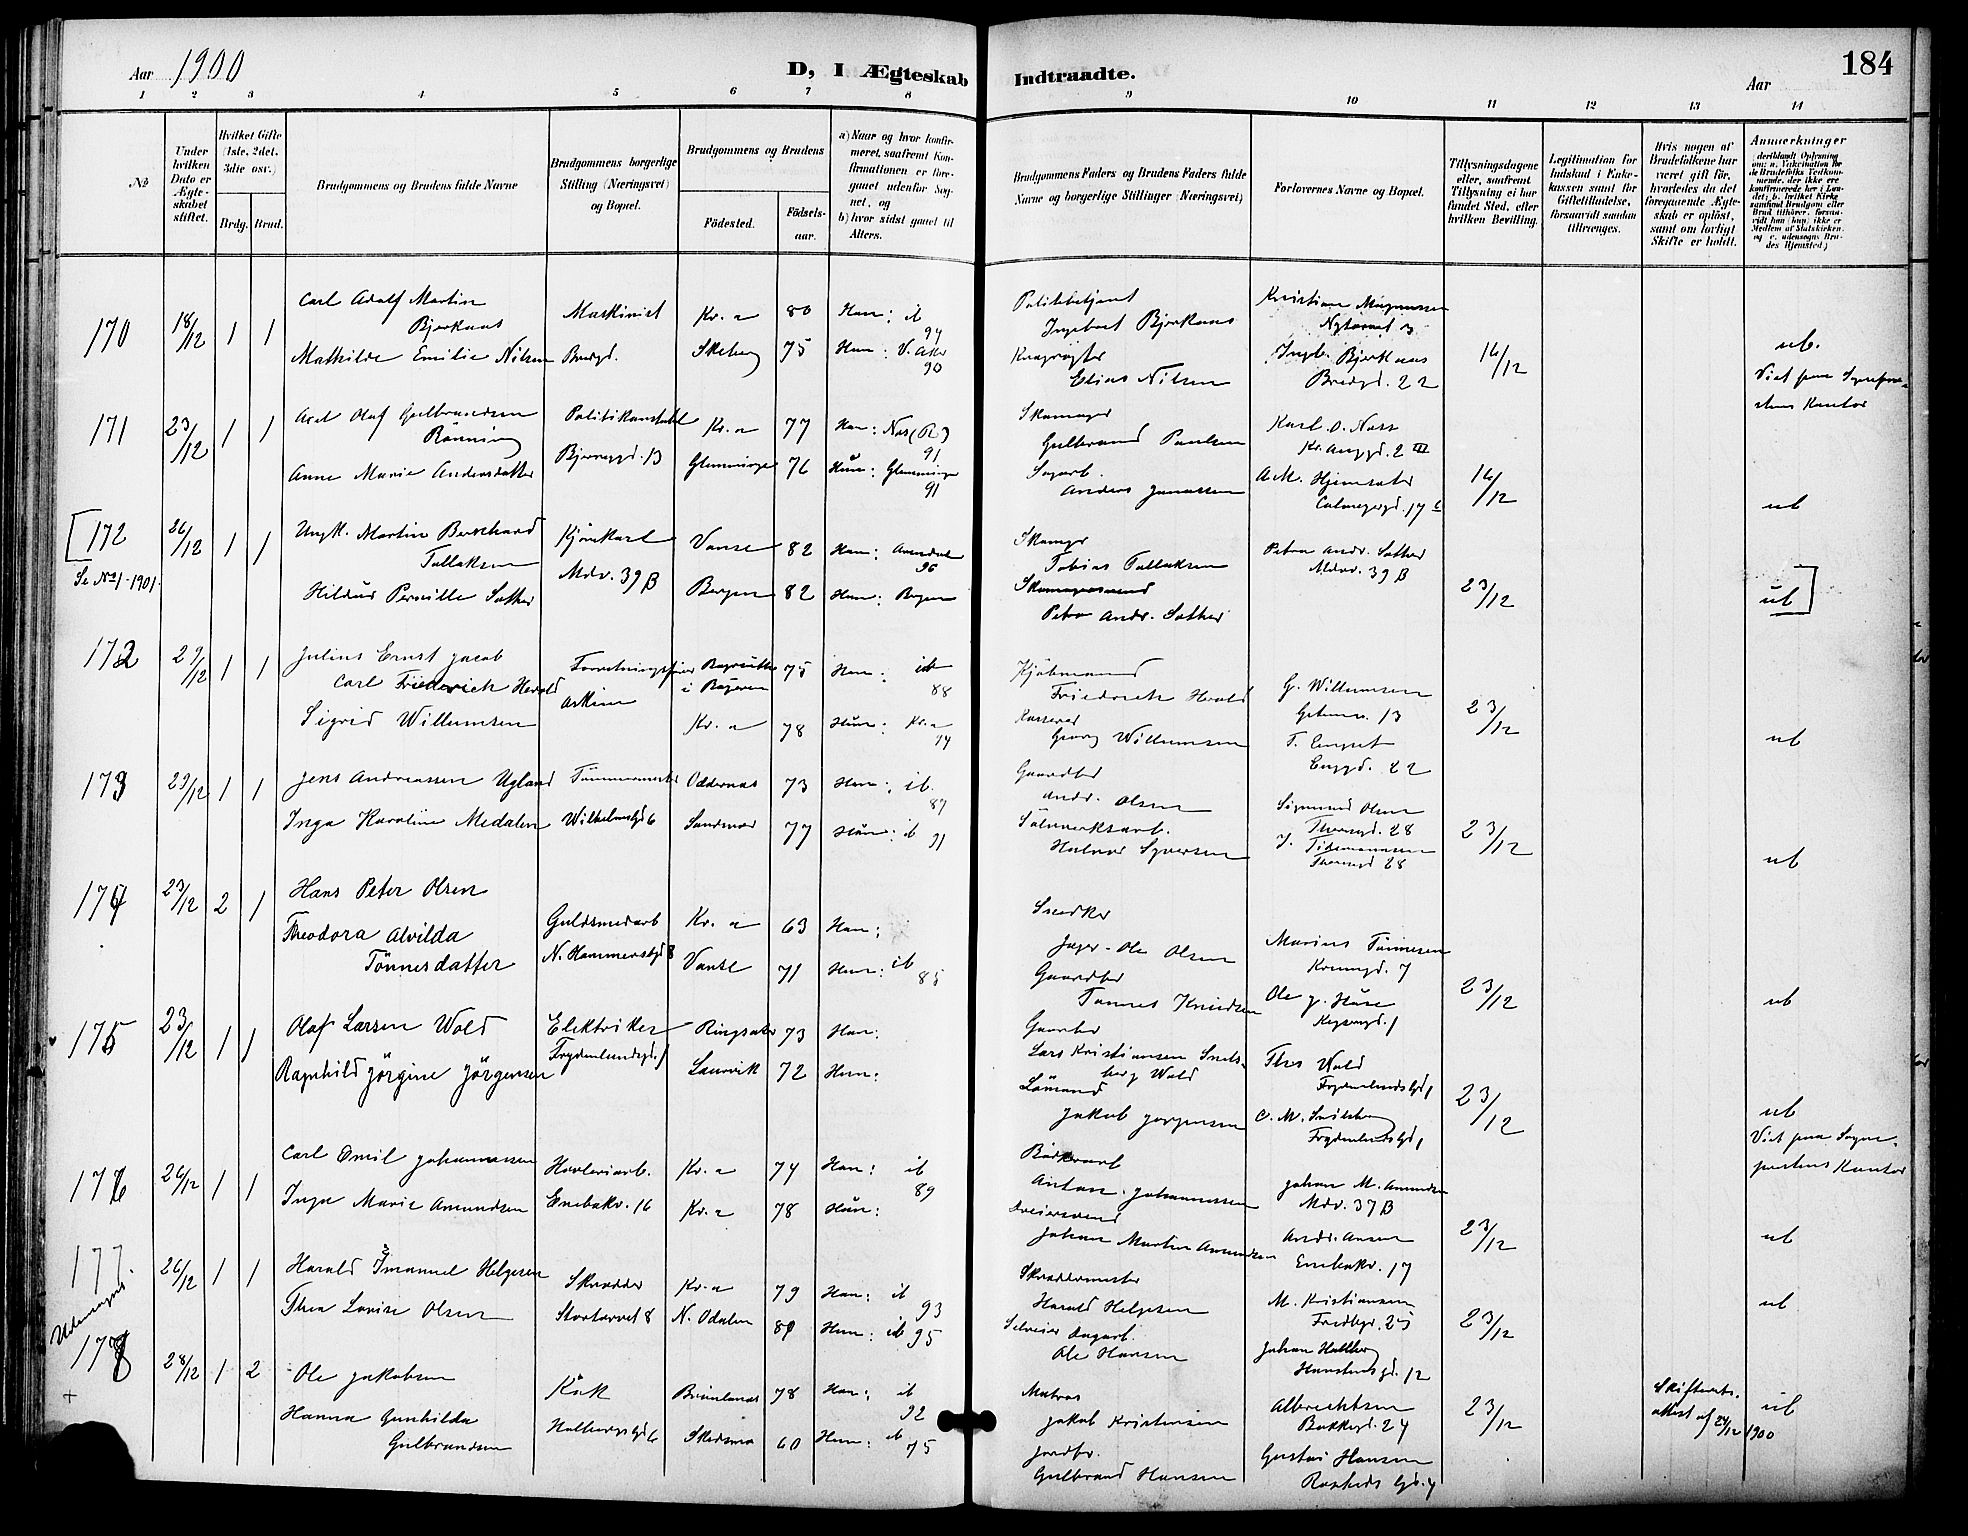 Aar 1900
D, I Ægteskab Indtraadte.
Aar
184
1 2 3 4 5 6 7 8 9 10 11 12 13 14
No
Under hvilken Dato er Ægteskabet stiftet.
Hvilket Gifte (1ste, 2det, 3die osv.)
Brdg. Brud.
Brudgommens og Brudens fulde Navne
Brudgommens borgerlige Stilling (Næringsvei) og Bopæl.
Brudgommens og Brudens
Fødested.
Fødselsaar.
a) Naar og hvor konfirmeret, saafremt Konfirmationen er foregaaet udenfor Sognet, og
b) hvor sidst gaaet til Alters.
Brudgommens Faders og Brudens Faders fulde Navne og borgerlige Stillinger (Næringsvei)
Forlovernes Navne og Bopæl.
Tillysningsdagene eller, saafremt Tillysning ei har fundet Sted, efter hvilken Bevilling.
Legitimation for Indskud i Enkekassen samt for Giftetilladelse, forsaavidt saadan tiltrænges.
Hvis nogen af Brudefolkene har været gift før, hvorledes da det foregaaende Ægteskab er opløst, samt om lovligt Skifte er holdt.
Anmærkninger
170 18/12 1 1
Carl Adolf Martin
Bjerkaas
Maskinist
Kr.a 80 Han: ib
94
Politibetjent
Ingebret Bjerkaas
Kristian Magnussen
Nytorvet 3
Mathilde Emilie Nilsen
Bredgd.
Skeberg 75 Hun: V. Aker
90
Elias Nilsen
Ingb. Bjerkaas
Bredgd. 22
16/12
ub.
Viet paa Sognepre-
stens Kontor
171 23/12 1 1
Axel Olaf Gulbrandsen
Rønning
Politikonstabel
Bjerregd. 13
Kr.a 77 Han: Næs (R)
91
Skomager
Gulbrand Paulsen
Karl O. Næss
Kr. Auggd. 2 III
Anne Marie Andersdatter
Glemminge 76 Hun: Glemminge
91
Sagarb.
Anders Jonassen
A.M. Hjemsæter
Calmeyergd. 17
16/12
ub
172 26/12 1 1
Se No 1 - 1901
Ungk. Martin Bernhard
Tallaksen
Kjørekarl
Mdv. 39 B
Vanse 82 Han: Arendal
96
Skomgr
Tobias Tallaksen
Petra Andr. Sæther
Mdv. 39 B
Hildur Pernille Sæther
Bergen 82 Hun: Bergen
Petra Andr. Sæther
23/12
ub
172 29/12 1 1
Julius Ernst Jacob
Carl Friederich Herold
Forretningsfører
Askim
Bayreuth
i Bayern 75 Han: ib
88
Kjøbmand
Friedrich Herold
G. Willumsen
13
Sigrid Willumsen
Kr.a 78 Hun: Kr.a
94
Kasserer
Georg Willumsen
T. Engset
Enggd. 22
23/12
ub
173 29/12 1 1
Jens Andreassen Ugland
Tømmermester
Wilhelmsgd 6
Oddernæs 73 Han: ib.
87
Gaardbr
Andr. Olsen
Sigmund Olsen
Thorsgd. 28
Inga Karoline Medalen
Sandsvær 77 Hun: ib 91
Sølvverksarb.
Halvor Syversen
J. Tidemannsen
Thorsgd 28
23/12
ub
174 23/12 2 1
Hans Peter Olsen
Guldsmedarb
N. Hammersbgd 8
Kr.a 63 Han:
Snedker
Jager-Ole Olsen
Marius Tønnesen
7
Theodora Alvilda
Tønnesdatter
Vanse 71 Hun: ib 85
Gaardbr
Tønnes Knudsen
Ole J. Huse
Keysersgd. 1
23/12
ub
175 23/12 1 1
Olaf Larsen Wold
Elektriker
Frydenlundsgd. 1
Ringsaker 73 Han:
Gaardbr
Lars Kristiansen Snels-
berg Wold
Thos Wold
Frydenlundsgd 1
Ragnhild Jørgine Jørgensen
Laurvik 72 Hun:
Jakob Jørgensen
Frydenlundsgd 1
23/12
ub
Viet paa Sogne-
prestens Kontor
176 26/12 1 1
Carl Emil Johannessen
Høvleriarb.
Enebakv. 16
Kr.a 74 Han: ib
89
Anton Johannessen
Johan M. Amundsen
Mdv. 37 B
Inga Marie Amundsen
Kr.a 78 Hun:
Dreiersvend
Johan Martin Amundsen
Andr. Ansen
Enebakv. 17
23/12
ub
177 26/12 1 1
Harald Imanuel Helgesen
Skrædder
Stortorvet 8
Kr.a 79 Han: ib
93
Skræddermester
Harald Helgesen
M. Kristiansen
Fredbgr. 25
Thea Lovise Olsen
N. Odalen 80 Hun: ib 95
Ole Hansen
Johan
Hausmsgd. 12
23/12
ub
Udensogns
178 28/12 1 2
Ole Jakobsen
Kusk
Holbergsgd 6
Brunlanæs 78 Han: ib
92
Matros
Jakob Kristensen
Albrechtsen
Bakkegd. 24
Hanna Gunhilda
Gulbrandsen
Skedsmo 60 Hun: ib 75
Jordbr.
Gulbrand Hansen
Gustav Hansen
23/12
Skifterets-
attest af 24/12 1900
ub